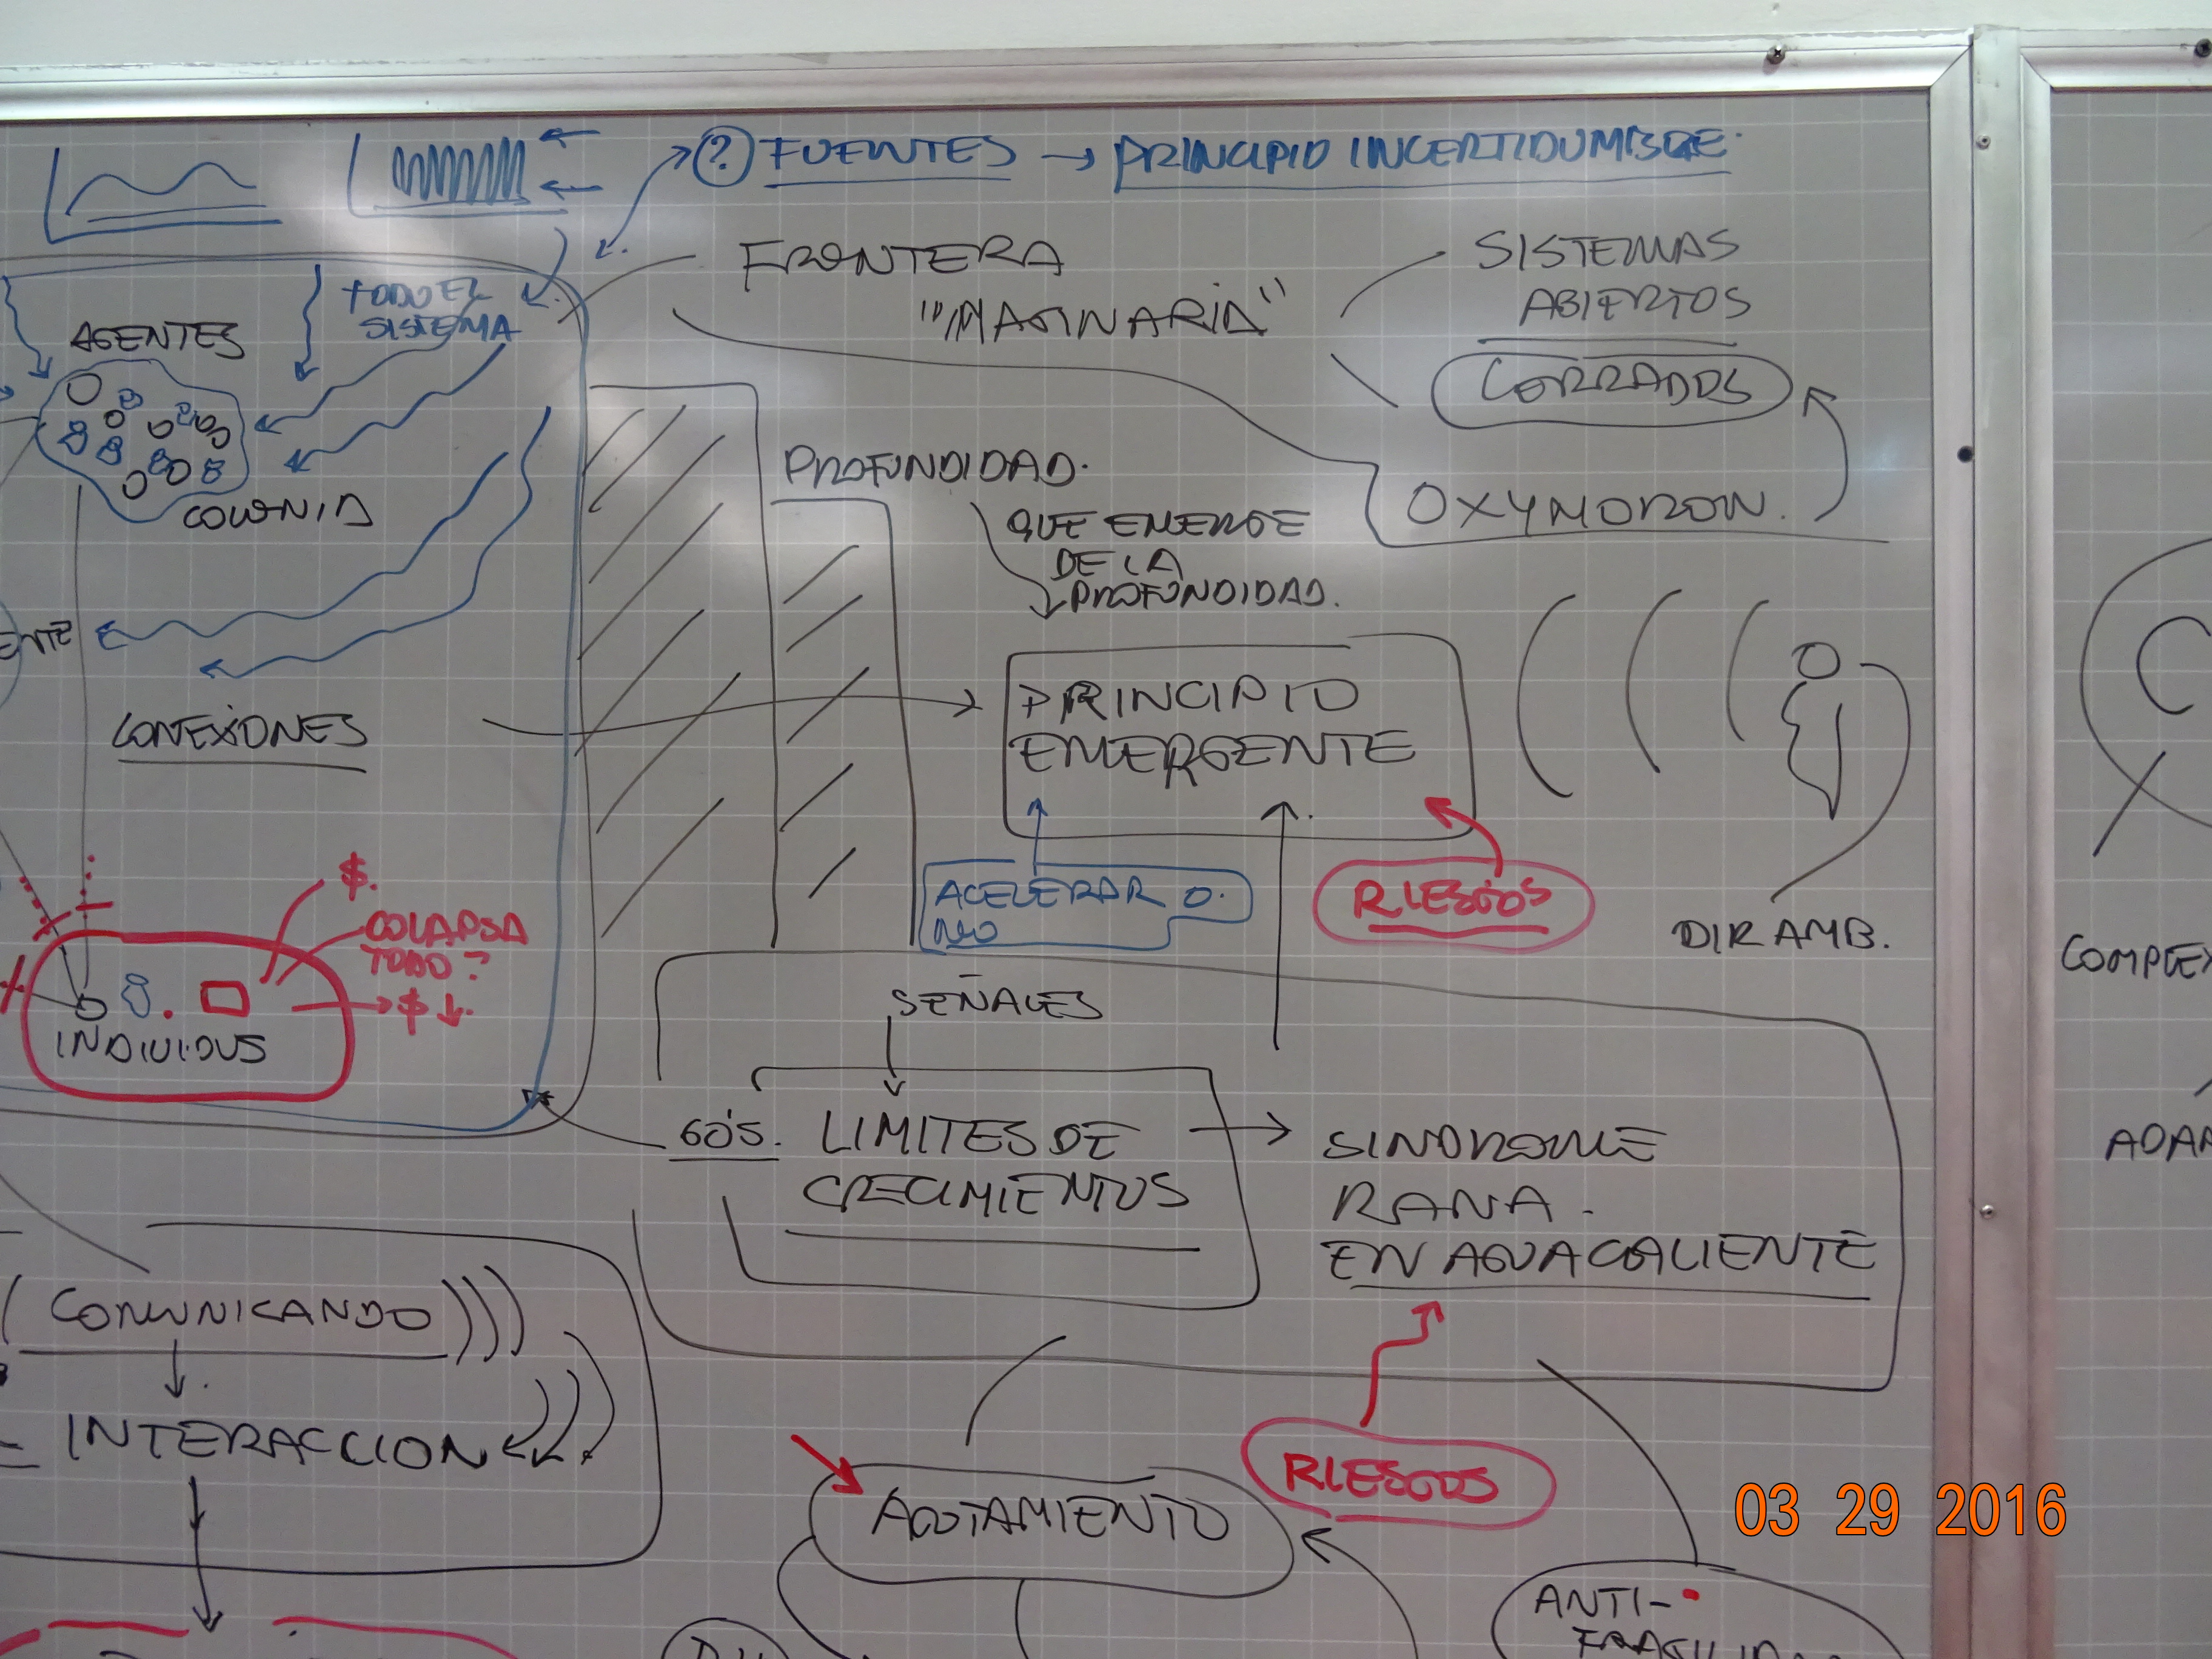 ? FUENTES → PRINCIPIO INCERTIDUMBRE.
FRONTERA
"IMAGINARIA"
SISTEMAS
ABIERTOS
CERRADOS
OXYMORON.
TODO EL
SISTEMA
AGENTES
COLONIA
PROFUNDIDAD.
QUE EMERGE
DE LA
PROFUNDIDAD.
ENTE
CONEXIONES
PRINCIPIO
EMERGENTE
ACELERAR O.
NO
RIESGOS
DIR AMB.
$.
COLAPSA
TODO?
$ ↓.
INDIVIDUS
SEÑALES
60'S. LIMITES DE
CRECIMIENTOS
SINDROME
RANA.
EN AGUA CALIENTE
(COMUNICANDO)))
INTERACCION
RIESGOS
AGOTAMIENTO
ANTI-
COMPLEX
ADAP
03 29 2016